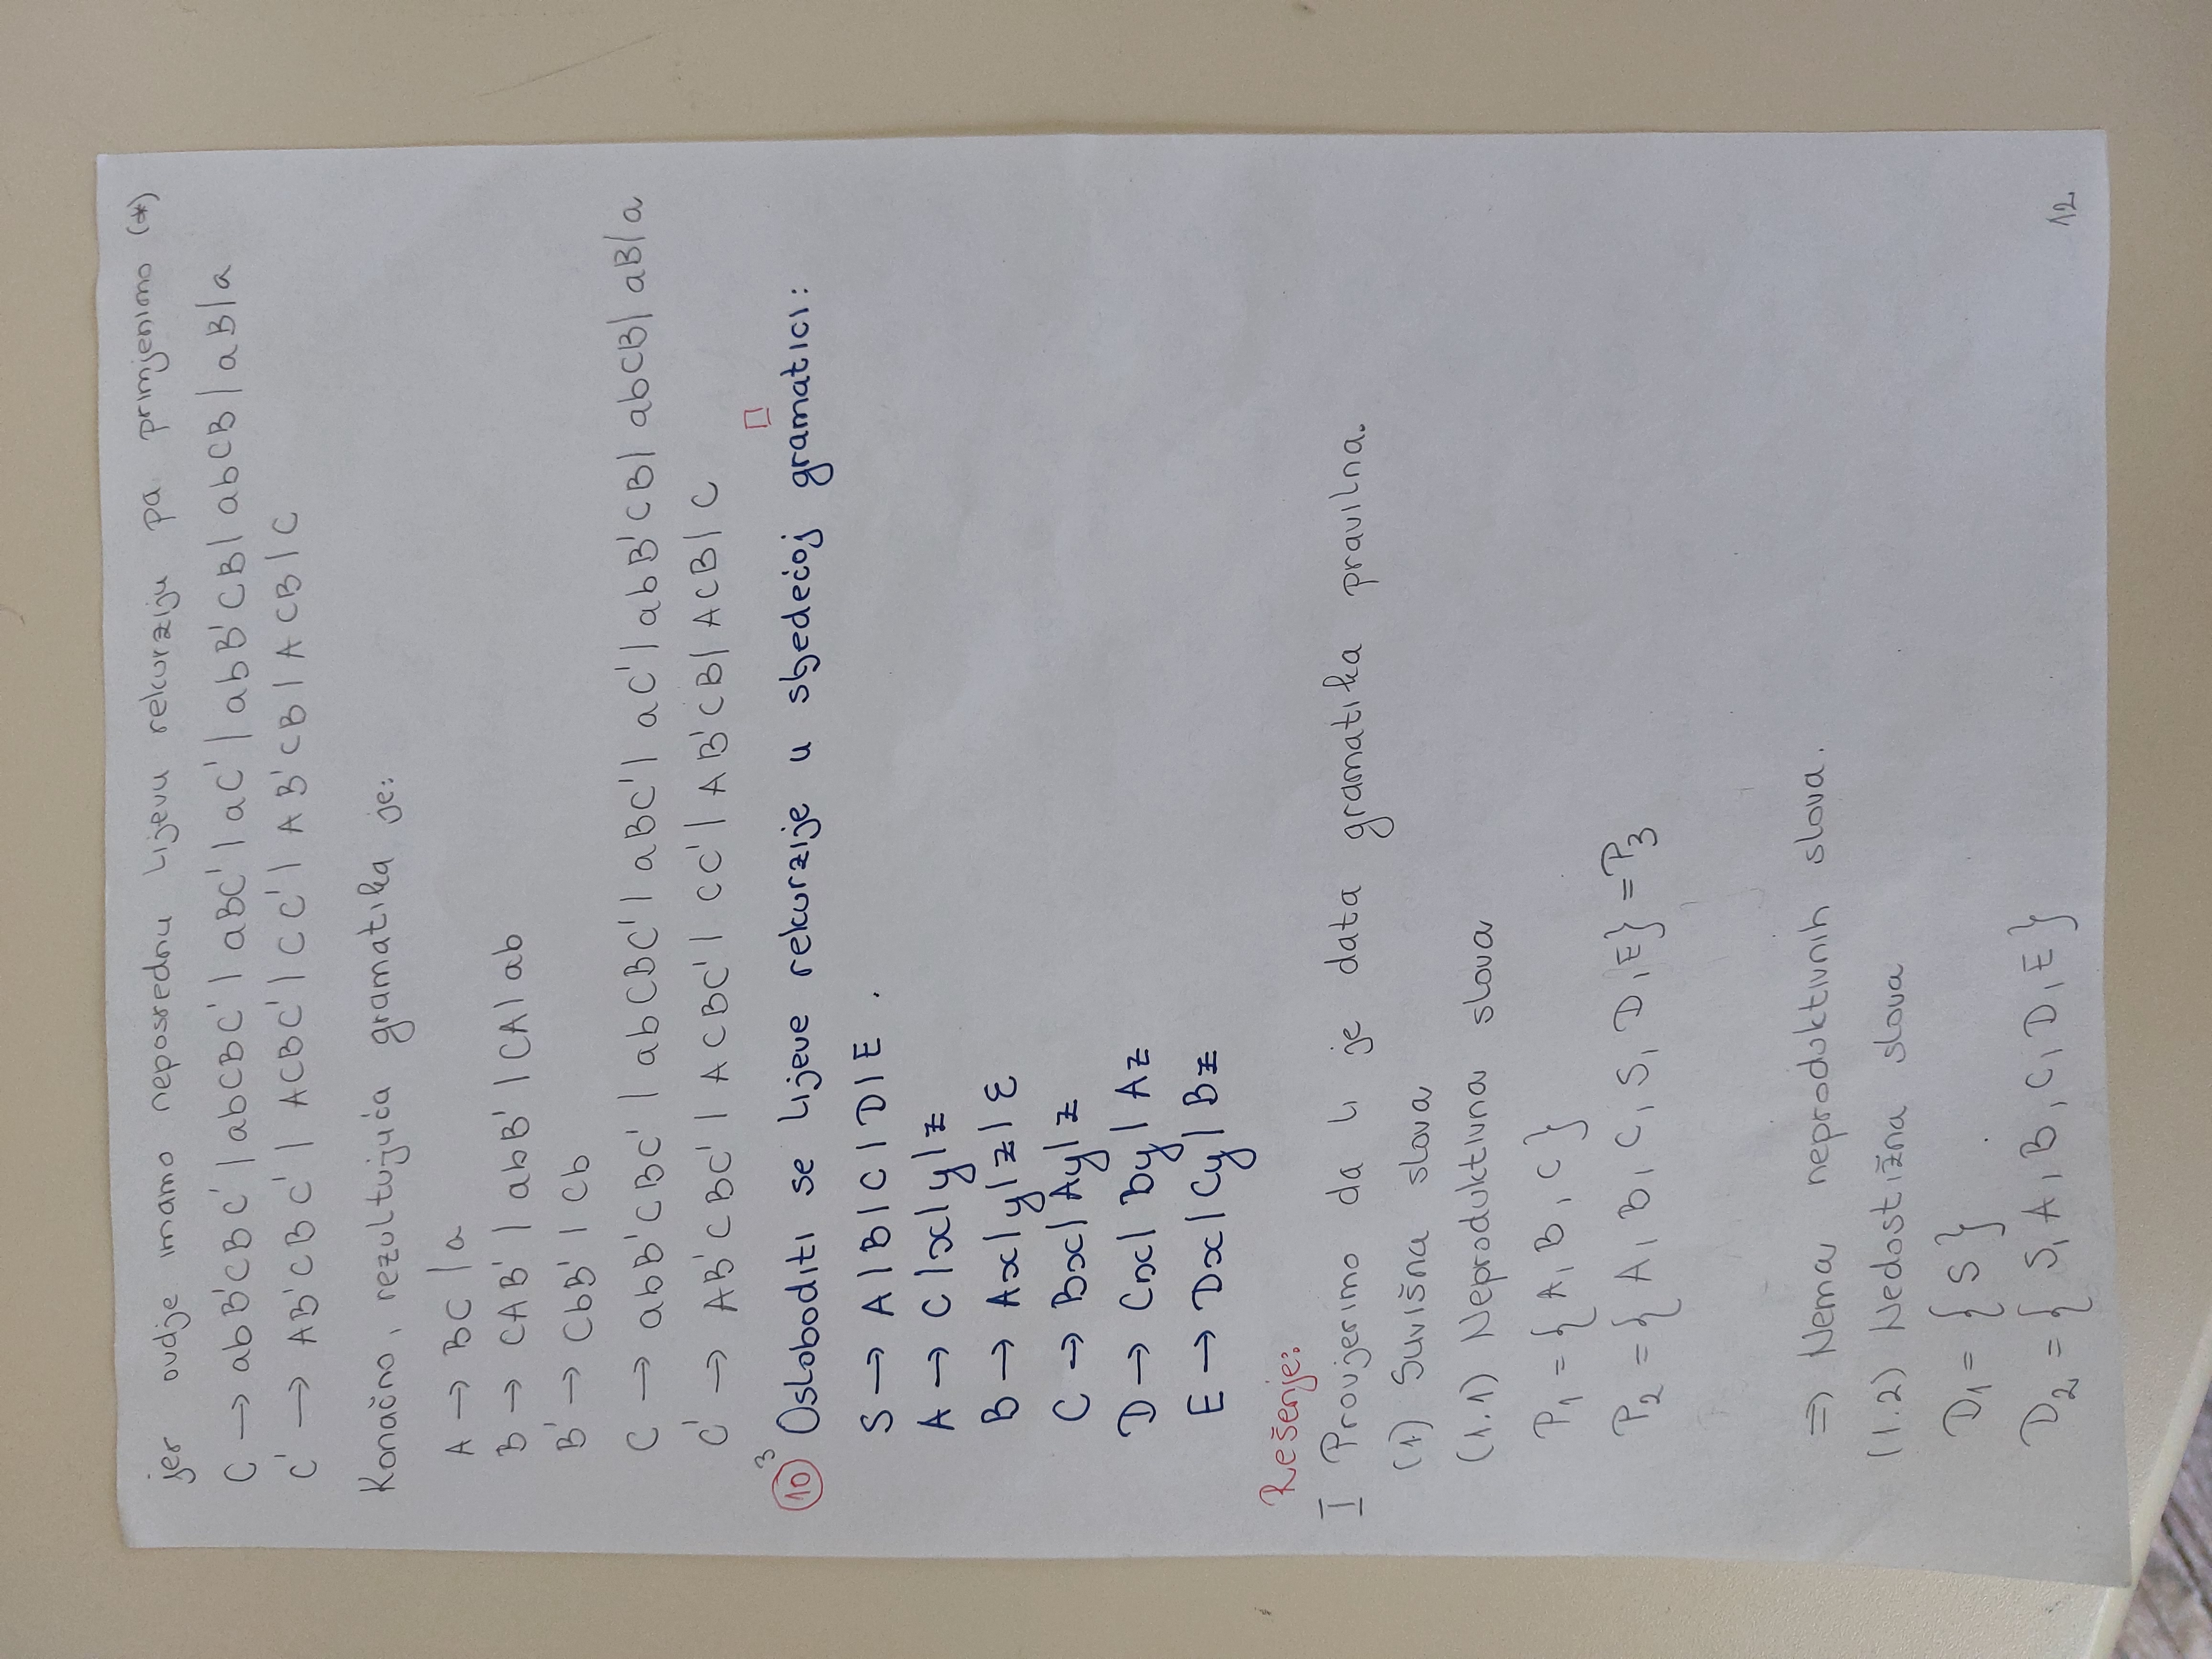 jer ovdje imamo neposrednu lijevu rekurziju pa primjenimo (*)
C → abB'CBC' | abCBC' | aBC' | aC' | abB'CB | abCB | aB | a
C' → AB'CBC' | ACBC' | CC' | AB'CB | ACB | C
Konačno, rezultujuća gramatika je:
A → BC | a
B → CAB' | abB' | CA | ab
B' → CbB' | Cb
C → abB'CBC' | abCBC' | aBC' | aC' | abB'CB | abCB | aB | a
C' → AB'CBC' | ACBC' | CC' | AB'CB | ACB | C
□
10 3 Osloboditi se lijeve rekurzije u sljedećoj gramatici:
S → A | B | C | D | E .
A → C | x | y | z
B → Ax | y | z | ε
C → Bx | Ay | z
D → Cx | By | Az
E → Dx | Cy | Bz
Rešenje:
I Provjerimo da li je data gramatika pravilna.
(1) Suvišna slova
(1.1) Neproduktivna slova
P₁ = { A, B, C }
P₂ = { A, B, C, S, D, E } = P₃
⇒ Nema neproduktivnih slova.
(1.2) Nedostižna slova
D₁ = { S }
D₂ = { S, A, B, C, D, E }
12